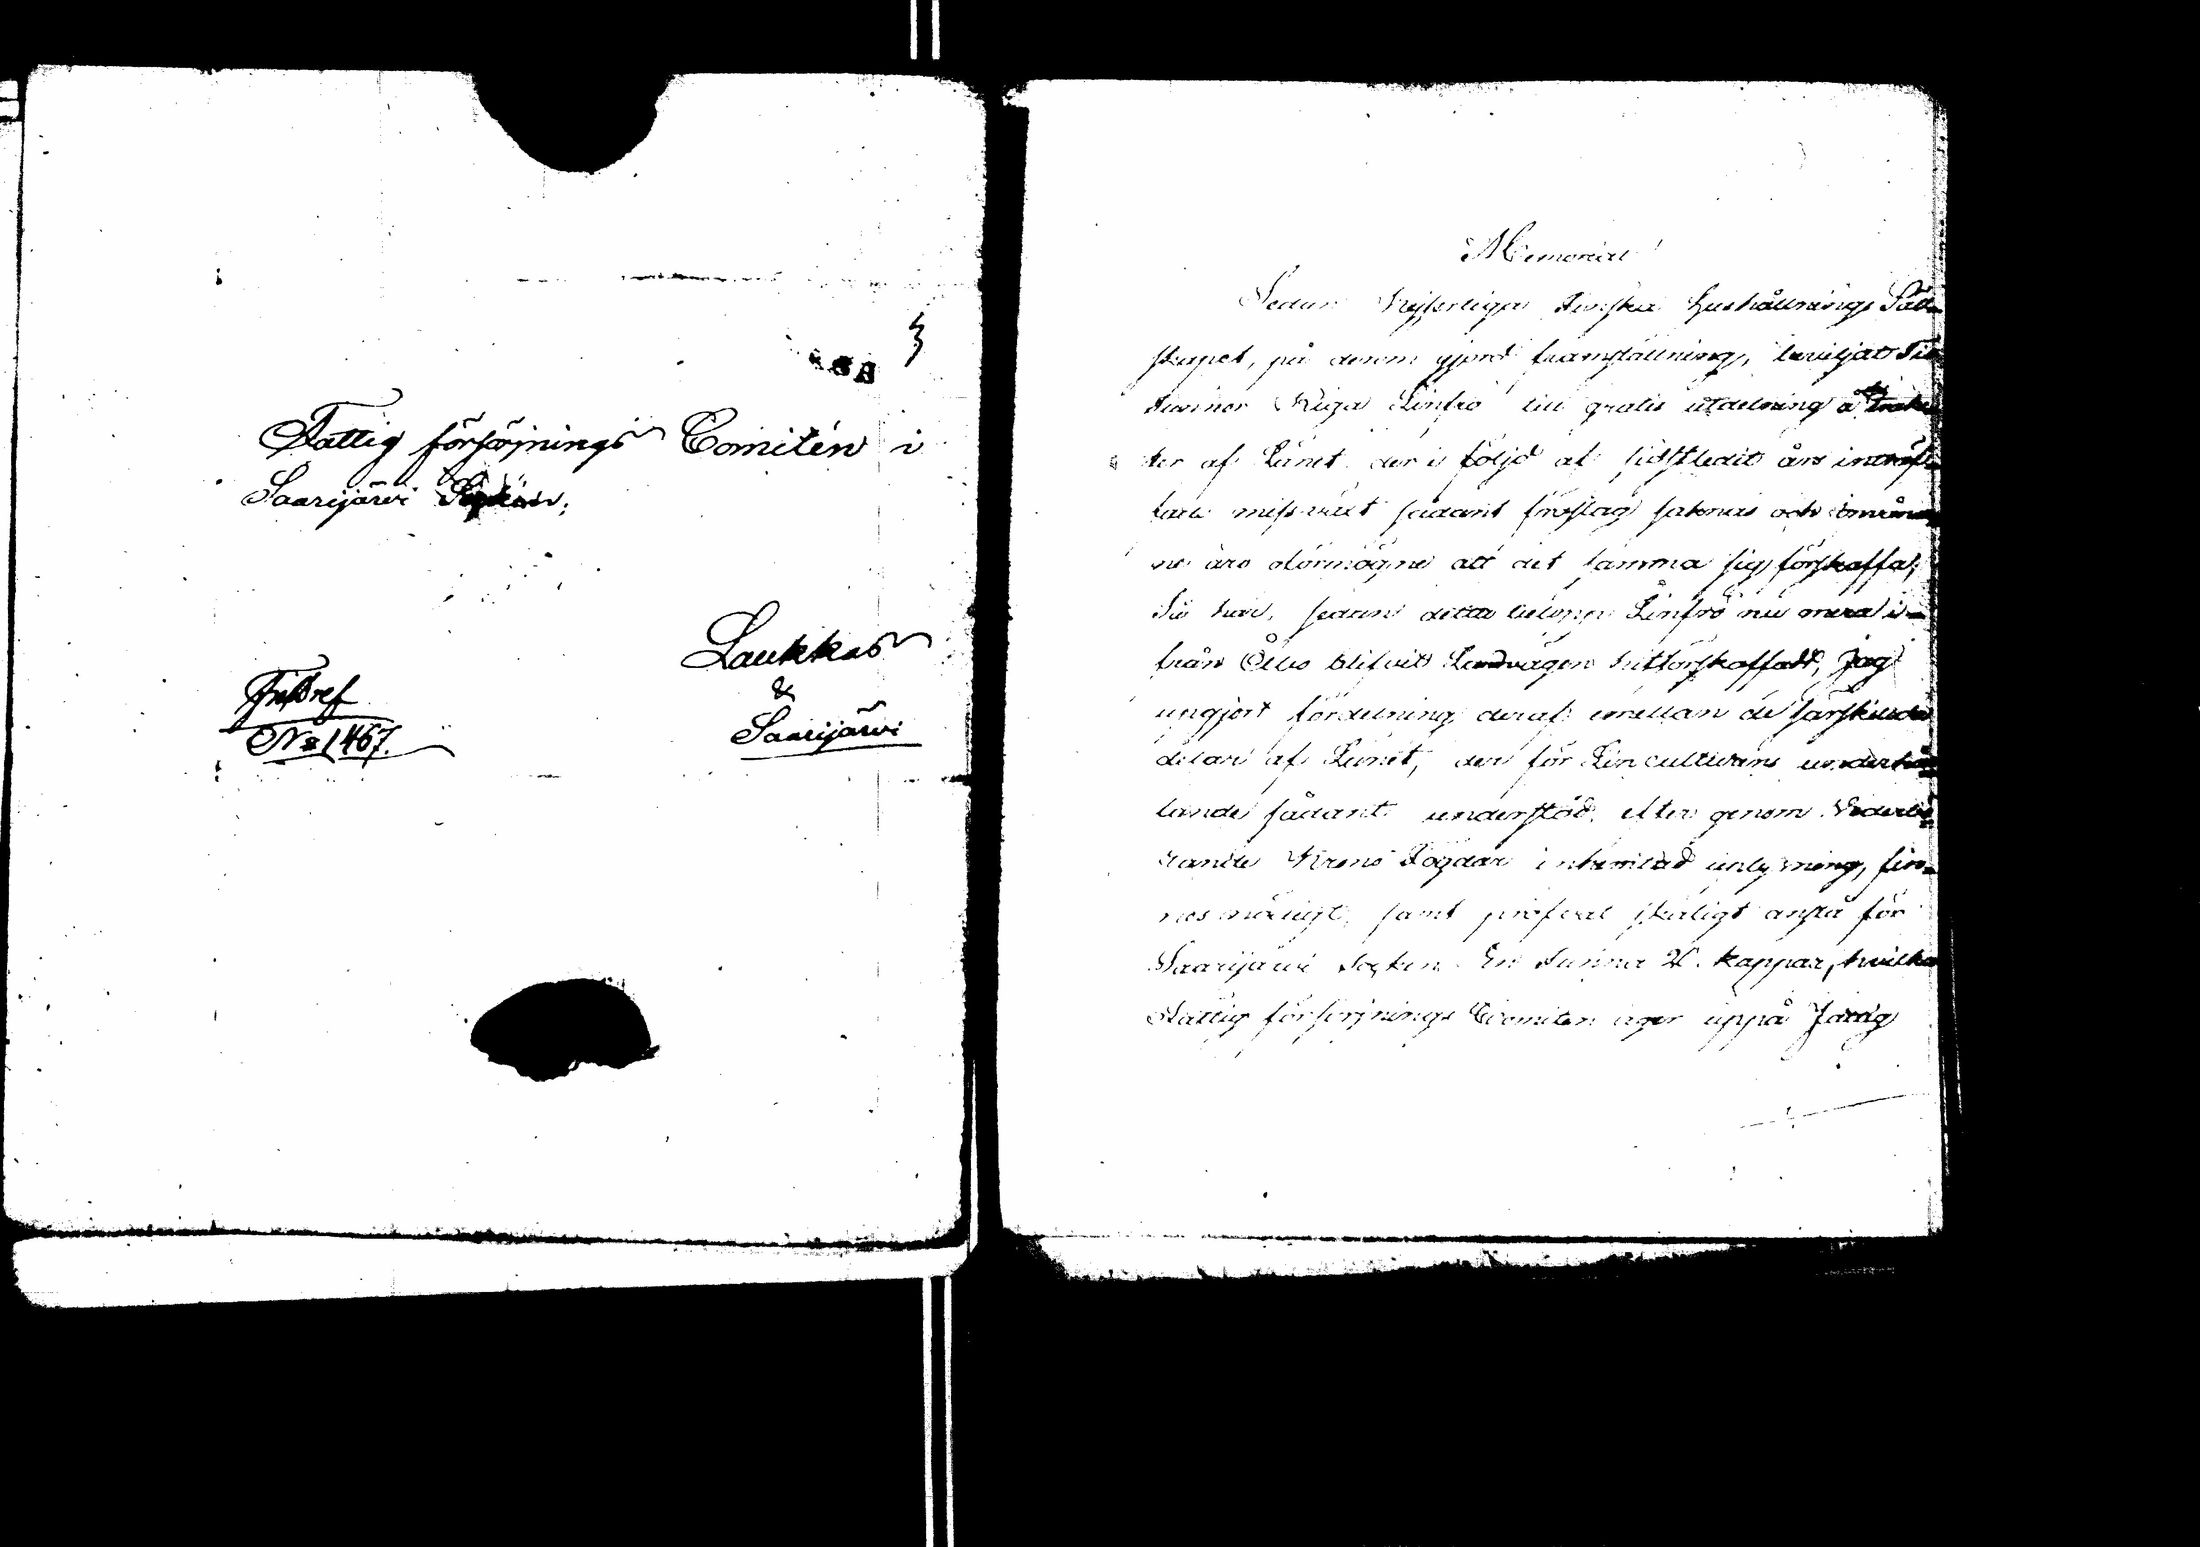 Fattig försörjnings Comitén i
Saarijärvi Socken;
Laukkas
&
Saarijärvi
FriBref
No 1467.
Memorial
Sedan Kejserliga Finska Hushållnings Säll-
skapet, på derom gjord framställning, beviljat Tio
Tunnor Riga Linfrö till gratis utdelning å de trak-
ter af Länet der i följd af sidstledit års inträf-
fade missväxt sådant förslag saknas och invånar-
ne äro oförmögne att det samma sig förskaffa;
Så har, sedan detta Linfrö nu mera i-
från Åbo blifvit Landvägen hitförskaffadt, Jag
uppgjort fördelning deraf emellan de särskilda
delar af Länet, der för Lin culturens underhål-
lande sådant understöd, efter genom Vederbö-
rande Krono Fogdar inhemtad upplysning, fin-
nes möjligt, samt skäligt anse för
Saarijärvi Socken En Tunna 26. kappar, hvilka
Fattig försörjnings Comitén äger uppå